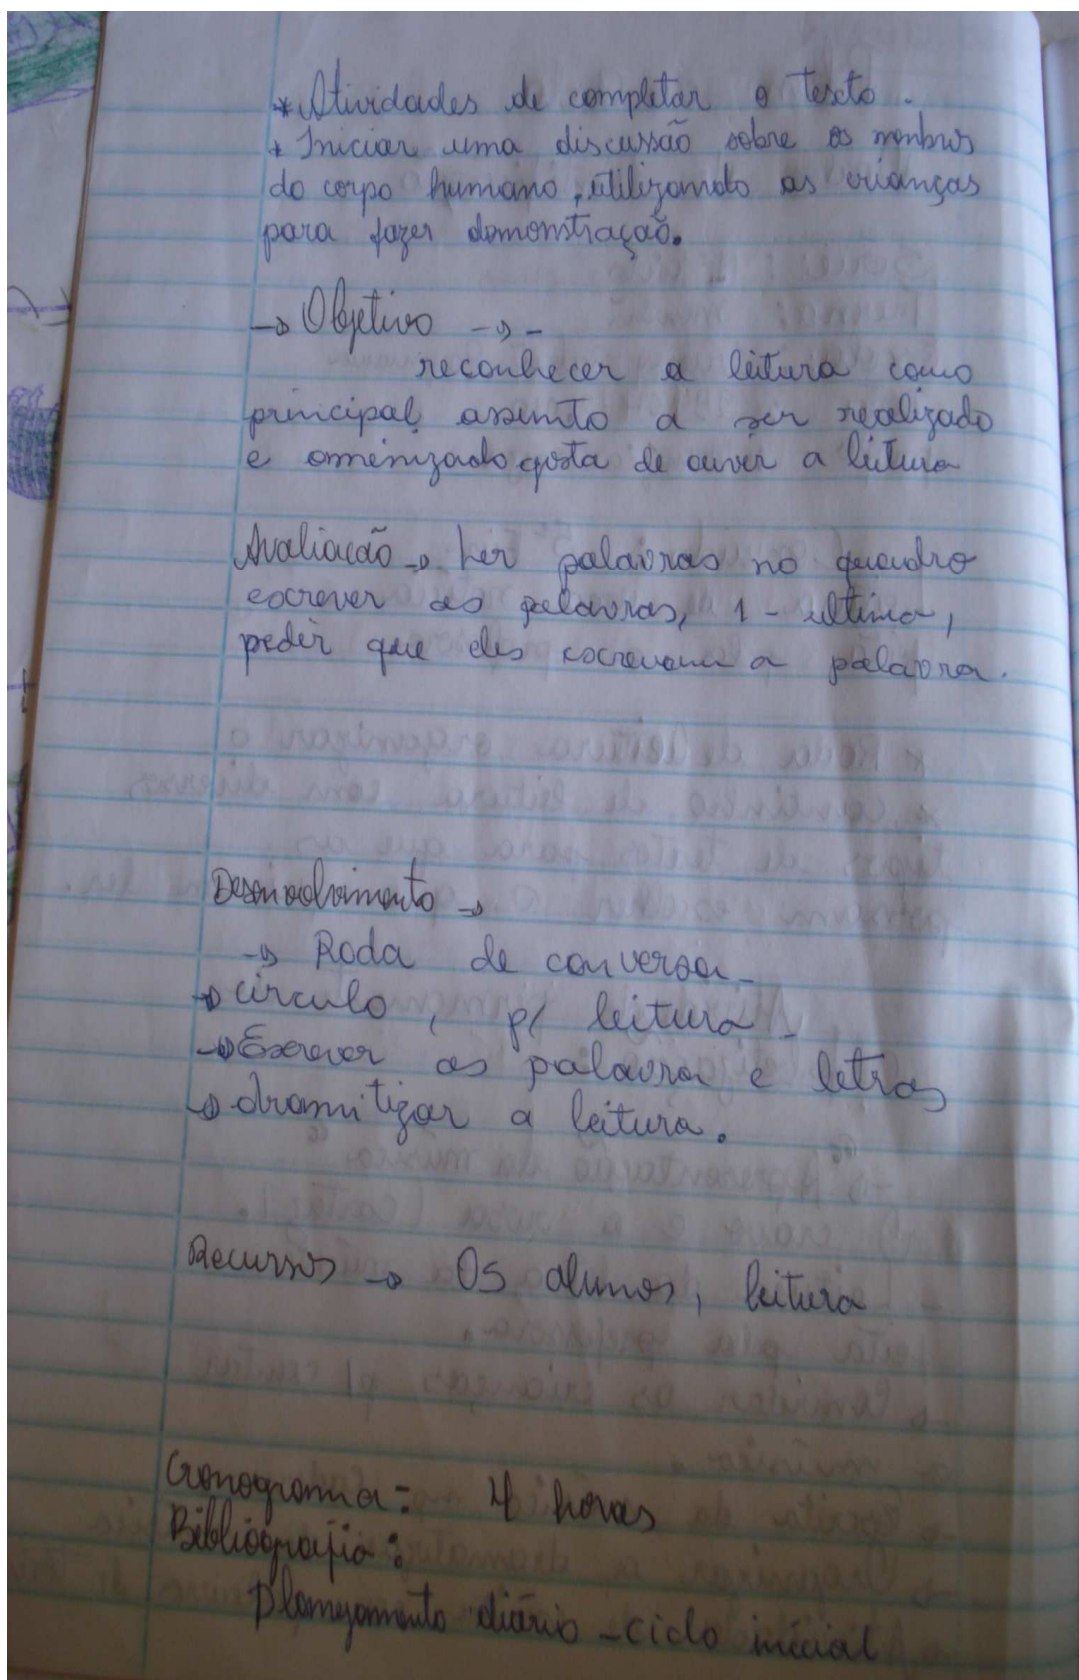 * Atividades de completar o texto.
* Iniciar uma discussão sobre os membros
do corpo humano, utilizando as crianças
para fazer demonstração.
→ Objetivo → -
reconhecer a leitura como
principal assunto a ser realizado
e gosta de ouvir a leitura
Avaliacão → Ler palavras no quadro
escrever as palavras, 1 - ultima,
pedir que eles escrevam a palavra.
Desenvolvimento →
→ Roda de conversa -
→ circulo, p/ leitura -
→ Escrever as palavra e letras
→ dramitizar a leitura.
Recursos → Os alunos, leitura
Cronograma: 4 horas
Bibliografia:
Planejamento diário - ciclo inicial